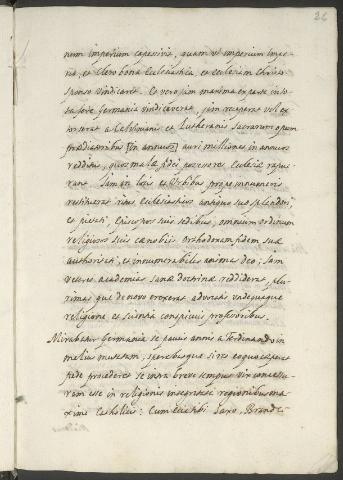 26
num imperium capessivit, quam ut imperium Imperio
rio, et Clero bona Ecclesiastica, et Ecclesiam Christo
sponso vindicaret. Et vero jam maxima ex parte in to
ta fere Germania vindicaverat, jam receperat vel ex
torserat a Calvinianis et Lutheranis sacrarum opum
praedatoribus [in annuos] auri milliones in annuos
redditus, quos mala fide possessores Ecclesiae rapue
rant. Jam in locis et Urbibus prope innumeris
restituerat ritus Ecclesiasticos antiquo suo splendori
et pietati, Episcopos suis sedibus, omnium ordinum
religiosos suis caenobiis orthodoxam fidem suae
authoritati, et innumerabiles animas Deo; Jam
veteres academias sanae doctrinae reddiderat, plu
rimas que de novo erexerat advocatis undequaque
religione et scientia conspicuis professoribus.
Mirabatur Germania se paucis annis a Ferdinando in
melius mutatam; sperabatque si res eo quo caeperat
pede procederet se intra breve tempus vix conceptu
ram esse in religionis integritate regionibus ma
xime Catholicis: Cum ecce tibi Saxo, Brande